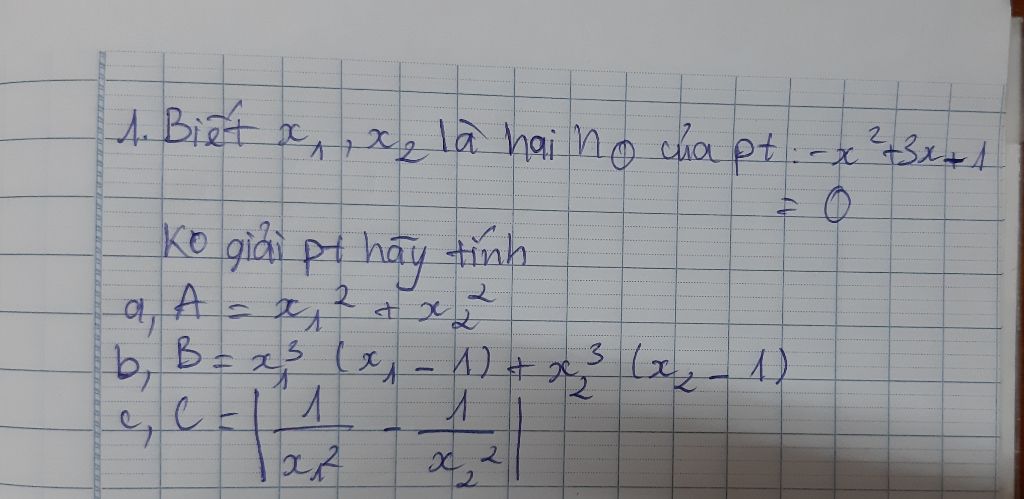 1. Biết x₁, x₂ là hai nₒ của pt: -x² + 3x + 1
= 0
Ko giải pt hãy tính
a, A = x₁² + x₂²
b, B = x₁³ (x₁ - 1) + x₂³ (x₂ - 1)
c, C = |1/x₁² - 1/x₂²|